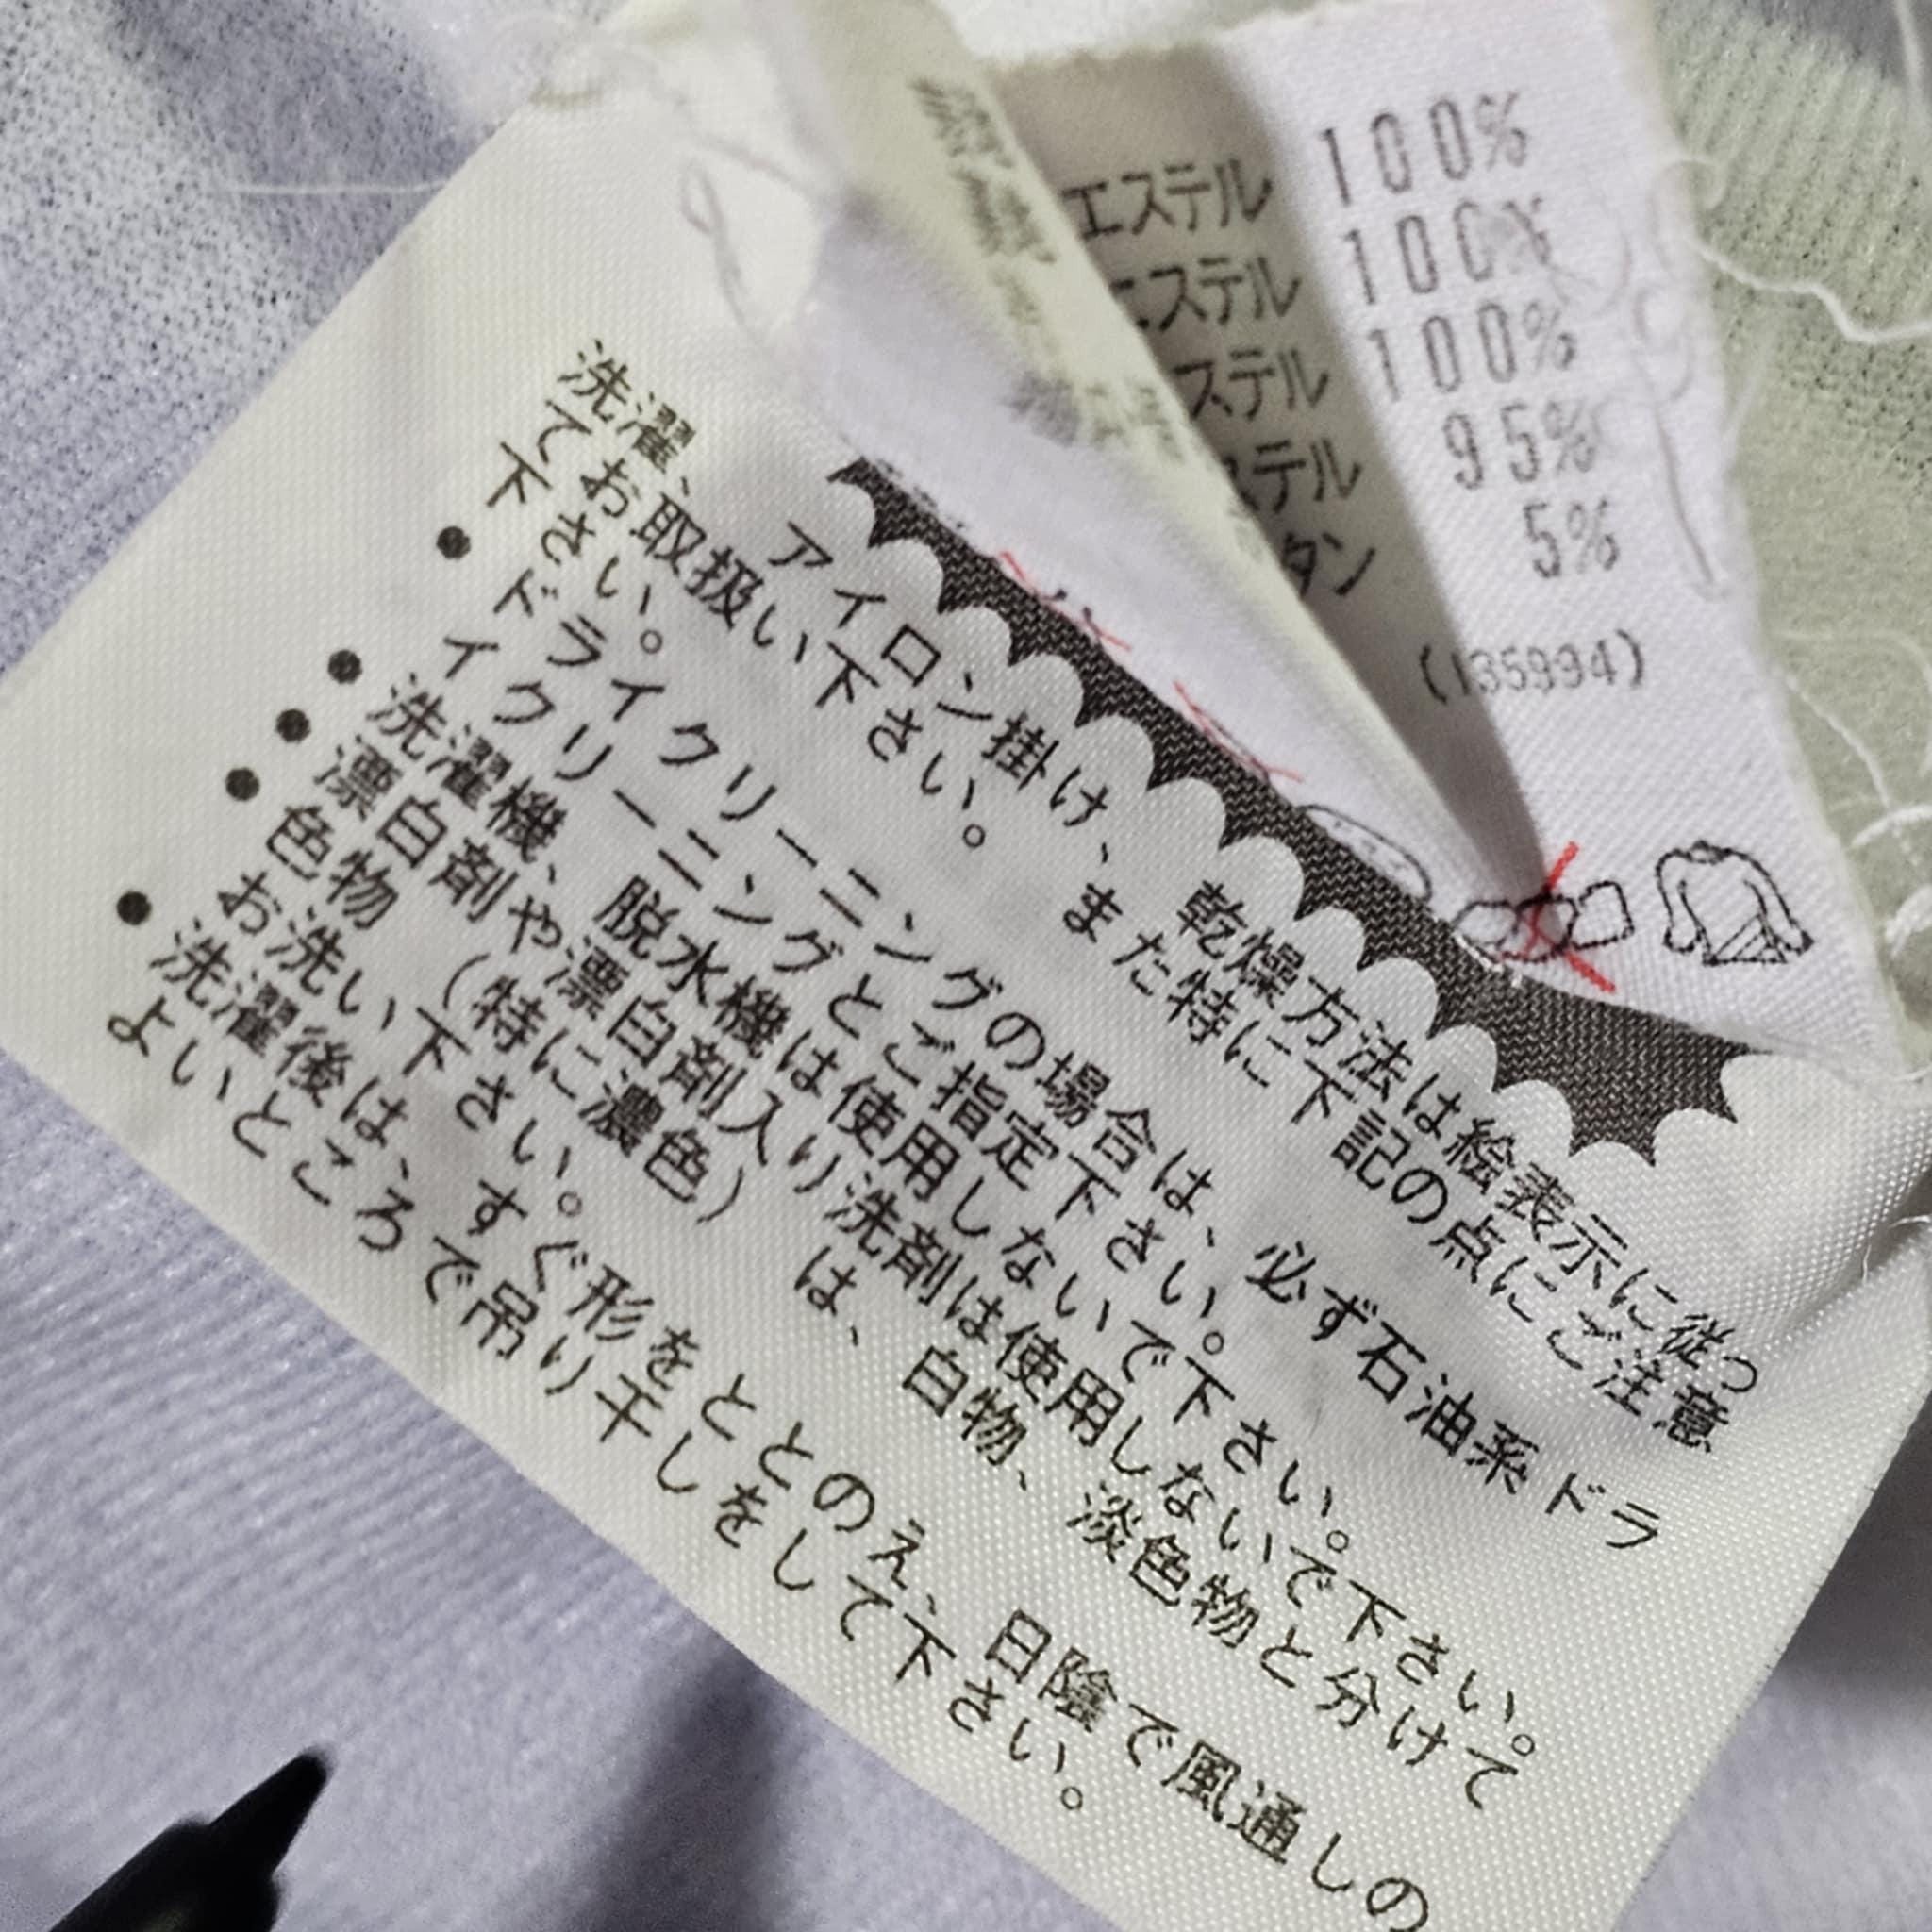 エステル 100%
エステル 100%
ステル 100%
ステル 95%
タン 5%
(135994)
洗濯、アイロン掛け、乾燥方法は絵表示に従っ
てお取扱い下さい。また特に下記の点にご注意
下さい。
●ドライクリーニングの場合は、必ず石油系ドラ
イクリーニングとご指定下さい。
●洗濯機、脱水機は使用しないで下さい。
●漂白剤や漂白剤入り洗剤は使用しないで下さい。
●色物（特に濃色）は、白物、淡色物と分けて
お洗い下さい。
●洗濯後は、すぐ形をととのえ、日陰で風通しの
よいところで吊り干しをして下さい。